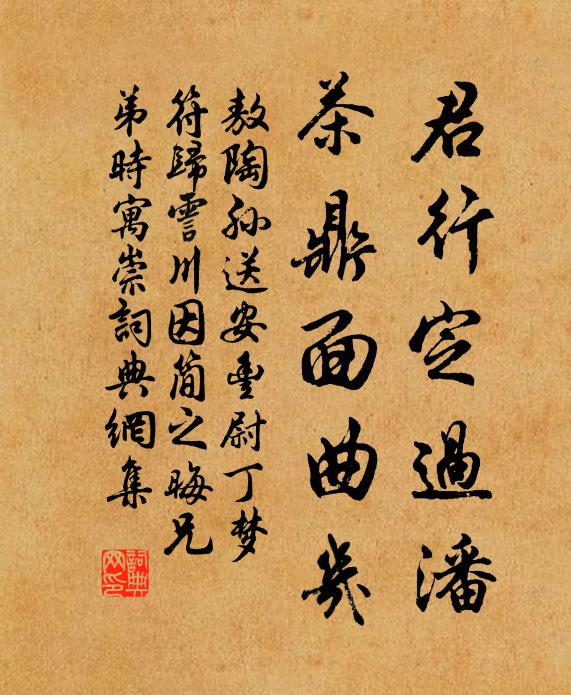 君行定過潘
茶鼎面曲几
敖陶孫送安豐尉丁梦
符歸雲川因簡之晦兄
弟時寓崇詞典網集
詞典网印